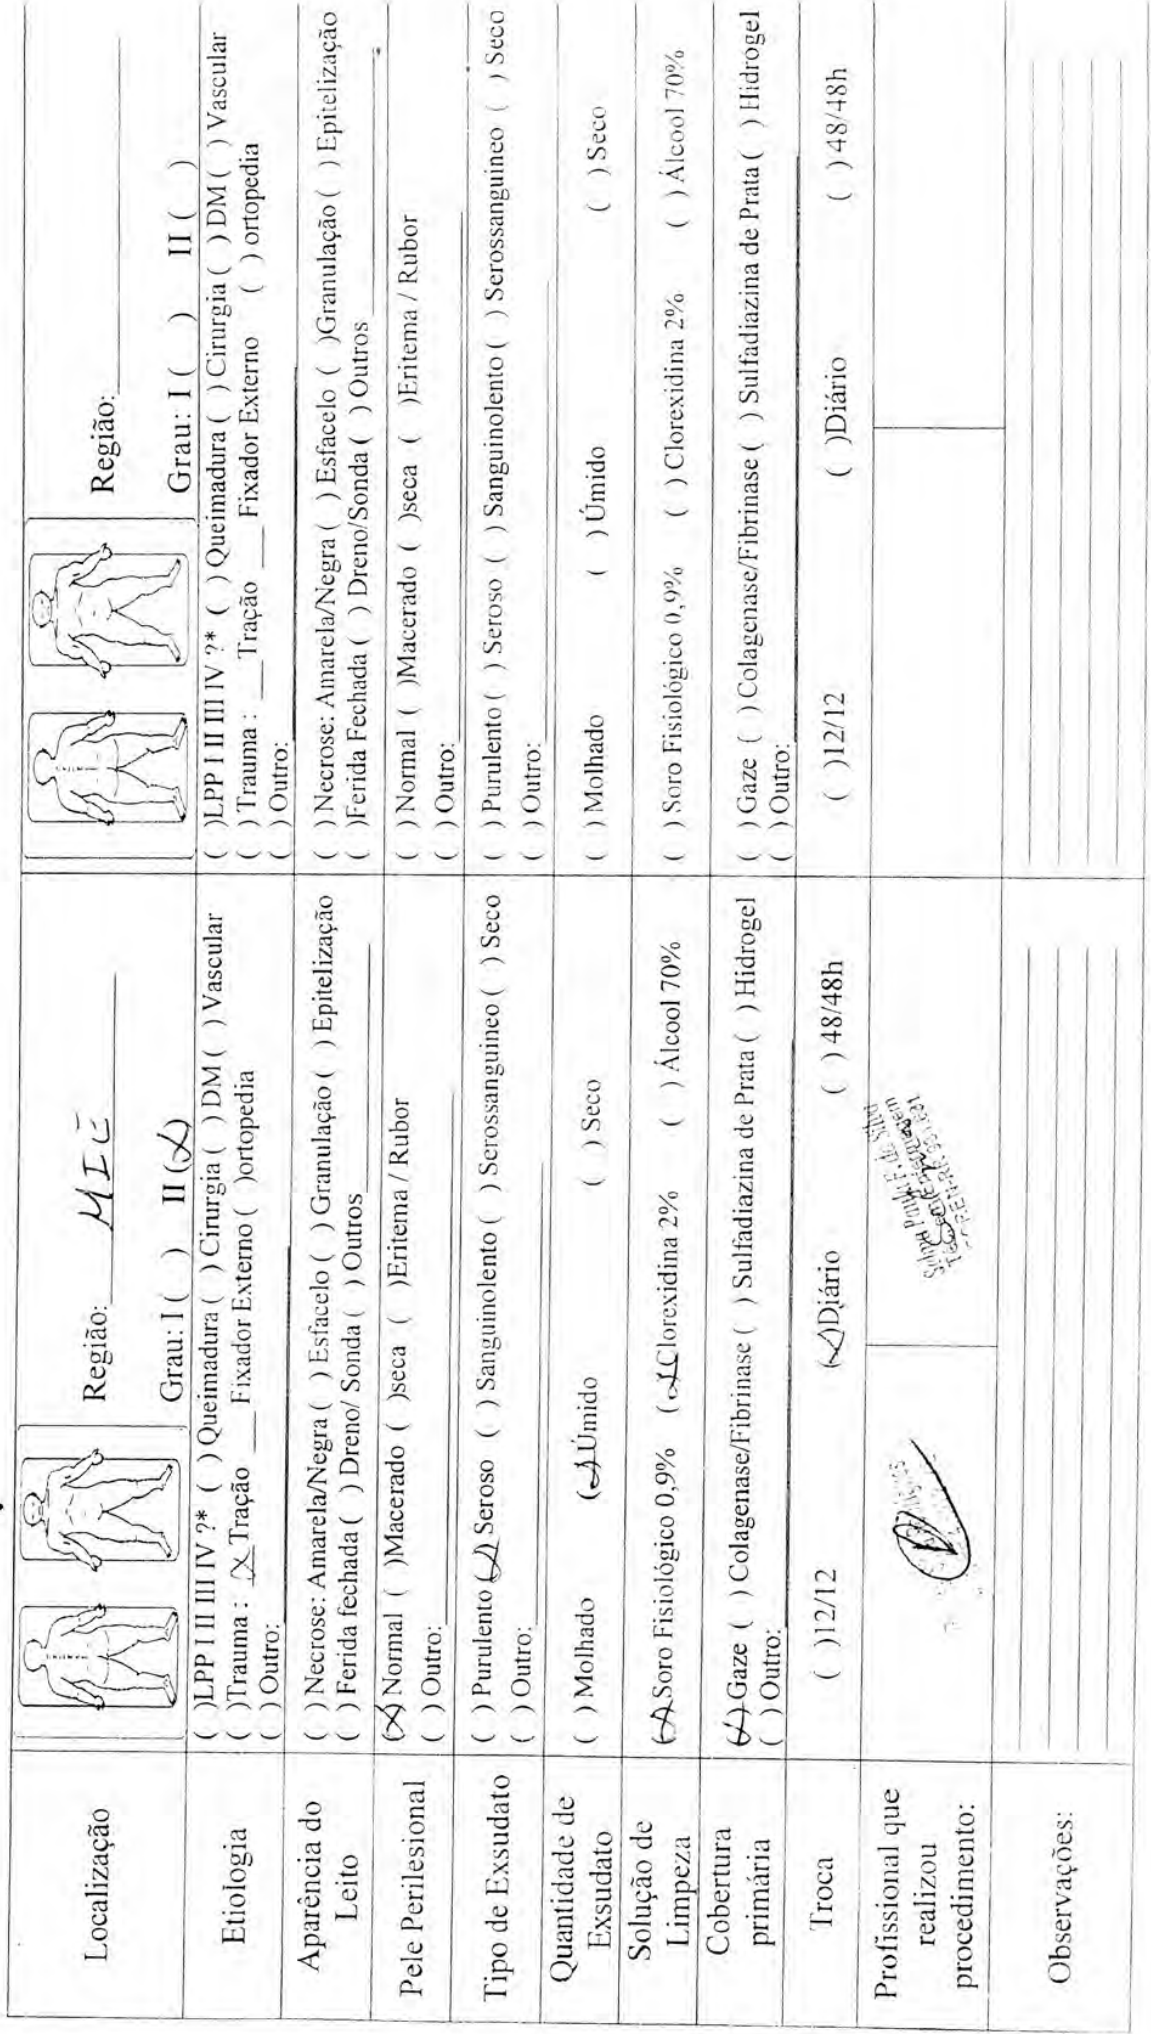 Localização
Região: MIE
Grau: I ( ) II (X)
Região:
Grau: I ( ) II ( )
Etiologia
( )LPP I II III IV ?* ( ) Queimadura ( ) Cirurgia ( ) DM ( ) Vascular
( )Trauma : X Tração ___ Fixador Externo ( )ortopedia
( ) Outro:
( )LPP I II III IV ?* ( ) Queimadura ( ) Cirurgia ( ) DM ( ) Vascular
( ) Trauma : ___Tração ___ Fixador Externo ( ) ortopedia
( ) Outro:
Aparência do
Leito
( ) Necrose: Amarela/Negra ( ) Esfacelo ( ) Granulação ( ) Epitelização
( ) Ferida fechada ( ) Dreno/ Sonda ( ) Outros
( ) Necrose: Amarela/Negra ( ) Esfacelo ( )Granulação ( ) Epitelização
( )Ferida Fechada ( ) Dreno/Sonda ( ) Outros
Pele Perilesional
(X) Normal ( )Macerado ( )seca ( )Eritema / Rubor
( ) Outro:
( ) Normal ( )Macerado ( )seca ( )Eritema / Rubor
( ) Outro:
Tipo de Exsudato
( ) Purulento (X) Seroso ( ) Sanguinolento ( ) Serossanguineo ( ) Seco
( ) Outro:
( ) Purulento ( ) Seroso ( ) Sanguinolento ( ) Serossanguineo ( ) Seco
( ) Outro:
Quantidade de
Exsudato
( ) Molhado (X)Úmido ( ) Seco
( ) Molhado ( ) Úmido ( ) Seco
Solução de
Limpeza
(X)Soro Fisiológico 0,9% (X)Clorexidina 2% ( ) Álcool 70%
( ) Soro Fisiológico 0,9% ( ) Clorexidina 2% ( ) Álcool 70%
Cobertura
primária
(X) Gaze ( ) Colagenase/Fibrinase ( ) Sulfadiazina de Prata ( ) Hidrogel
( ) Outro:
( ) Gaze ( )Colagenase/Fibrinase ( ) Sulfadiazina de Prata ( ) Hidrogel
( ) Outro:
Troca
( )12/12 (X)Diário ( ) 48/48h
( )12/12 ( )Diário ( ) 48/48h
Profissional que
realizou
procedimento:
Paula F. da Silva
Observações: